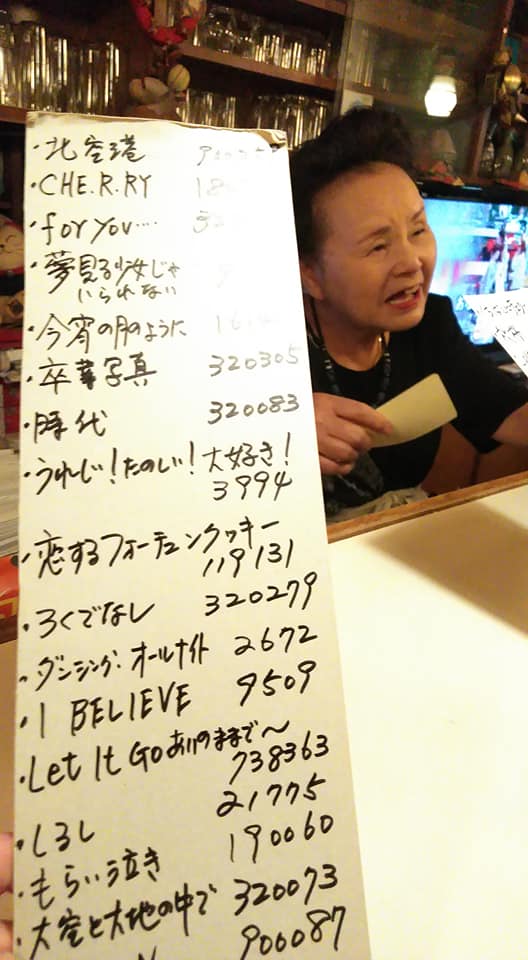 ・北空港
・CHE.R.RY
・for you....
・夢見る少女じゃ
いられない
・今宵の月のように
・卒業写真 320305
・時代 320083
・うれしい!たのしい!大好き!
3994
・恋するフォーチュンクッキー
119131
・ろくでなし 320279
・ダンシング・オールナイト 2672
・I BELIEVE 9509
・Let It Go ありのままで〜
738363
・しるし 21775
・もらい泣き 190060
・大空と大地の中で 320073
900087